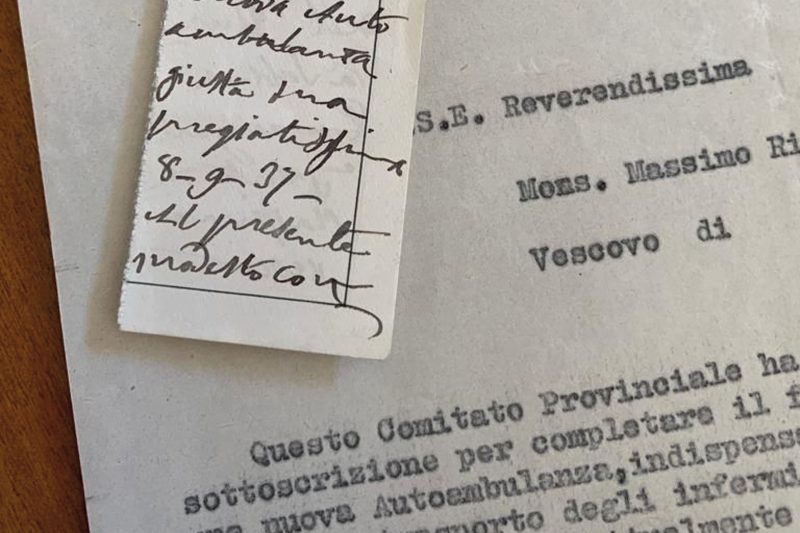 nuova Auto
ambulanza
giusta sua
pregiatissima
8-9-37-
Al presente
modesto con
S.E. Reverendissima
Mons. Massimo Ri
Vescovo di
Questo Comitato Provinciale ha
sottoscrizione per completare il f
una nuova Autoambulanza, indispensa
trasporto degli infermi
ualmente